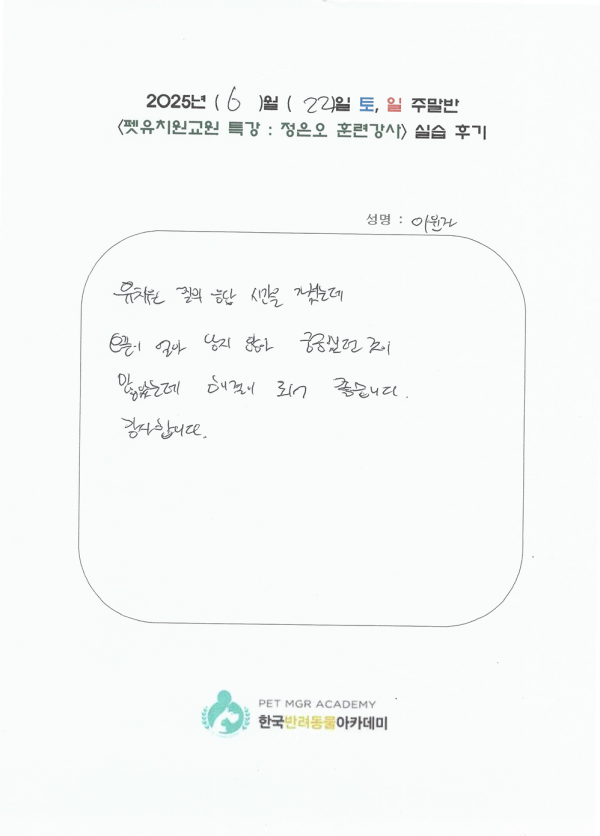 2025년 ( 6 )월 ( 22)일 토, 일 주말반
<펫유치원교원 특강 : 정은오 훈련강사> 실습 후기
성명 :
유치원 질의 응답 시간을 가졌는데
얼마 남지 않아 궁금했던 것이
많았는데 해결이 되어 좋습니다.
감사합니다.
PET MGR ACADEMY
한국반려동물아카데미